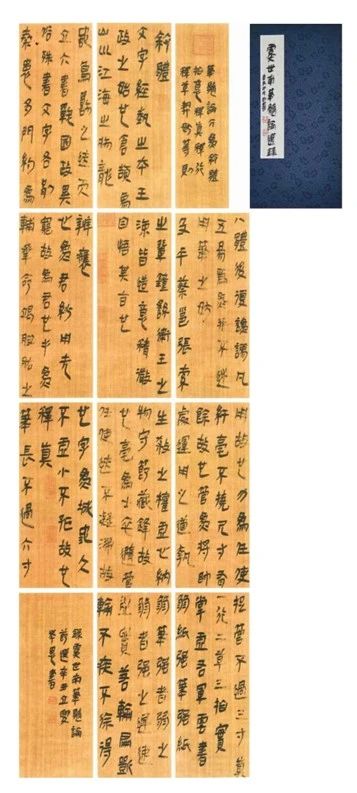 虞世南筆髓論選錄
筆髓論分為敘體
指意釋真釋行
釋草契妙等則
敘體
文字經藝之本王
政之始也倉頡象
山川江海之狀龍
蛇鳥獸之迹而
立六書戰國政異
俗殊書文字各別
秦患多門約為
八體後復訛謬凡
五易焉然并不述
用筆之妙
及乎蔡邕張索
之輩鍾繇衛王之
流皆造意精微
自悟其旨也
辨應
心為君妙用无
窮故為君也手為
輔承命竭股肱之
用故也力為任使
纖毫不撓尺寸有
餘故也管為將帥
處運用之道執
生殺之權虛心納
物守節藏鋒故
也毫為士卒隨管
任使迹不凝滯故
也字為城池大
不虛小不孤故也
釋真
筆長不過六寸
捉管不過三寸真
一行二草三指實
掌虛右軍云書
弱紙強筆強紙
弱筆強者弱之
弱者強之遲速
虛實若輪扁斲
輪不疾不徐得
錄虞世南筆髓論
節選辛丑立夏